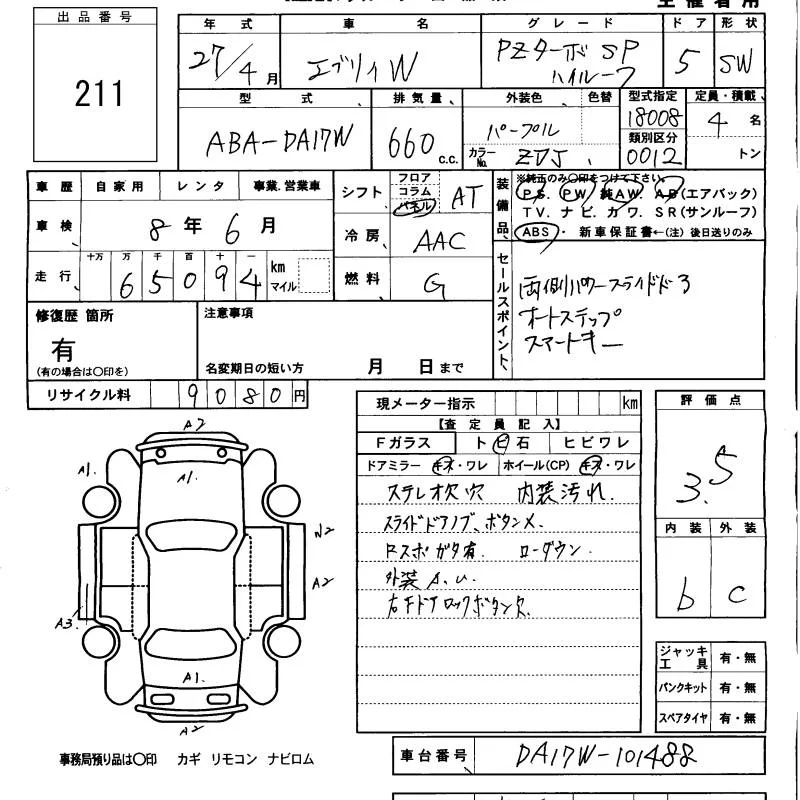 出品番号
211
年式 車名 グレード ドア 形状
27/4月 エブリィW PZターボ SP ハイルーフ 5 SW
型式 排気量 外装色 色替 型式指定 定員・積載
ABA-DA17W 660 c.c. パープル 18008 4名
カラーNo. ZVJ 類別区分 0012 トン
車歴 自家用 レンタ 事業.営業車
車検 8年6月
走行 十万 万 千 百 十 一
65094 km マイル
シフト フロア コラム パネル AT
冷房 AAC
燃料 G
装備品
※純正のみ〇印をつけて下さい
PS. PW. 純AW. AB(エアバック)
TV. ナビ. カワ. SR(サンルーフ)
ABS・ 新車保証書←(注)後日送りのみ
セールスポイント
両側パワースライドドア
オートステップ
スマートキー
修復歴 箇所
有
(有の場合は〇印を)
注意事項
名変期日の短い方 月 日まで
リサイクル料 9080円
現メーター指示 km
【査定員記入】
Fガラス トビ石 ヒビワレ
ドアミラー キズ・ワレ ホイール(CP) キズ・ワレ
ステレオ欠穴 内装汚れ.
スライドドアノブ、ボタン×.
Rスポガタ有. ローダウン.
外装A.U.
右FドアロックボタンX.
評価点
3.5
内装 外装
b c
A2
A1. A1.
W2
A2
A3.
A1.
A2
ジャッキ 工具 有・無
パンクキット 有・無
スペアタイヤ 有・無
事務局預り品は〇印 カギ リモコン ナビロム
車台番号 DA17W-101488